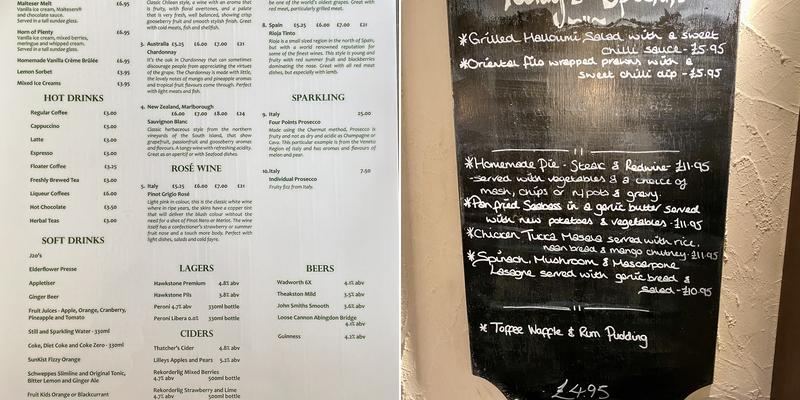 Malteser Melt £6.95
Vanilla ice cream, Maltesers®
and chocolate sauce.
Served in a tall sundae glass.
Horn of Plenty £6.95
Vanilla ice cream, mixed berries,
meringue and whipped cream.
Served in a tall sundae glass.
Homemade Vanilla Crème Brûlée £6.95
Lemon Sorbet £3.95
Mixed Ice Creams £3.95
HOT DRINKS
Regular Coffee £3.00
Cappuccino £3.00
Latte £3.00
Espresso £3.00
Floater Coffee £3.25
Freshly Brewed Tea £3.00
Liqueur Coffees £6.00
Hot Chocolate £3.50
Herbal Teas £3.00
SOFT DRINKS
J2o's
Elderflower Presse
Appletiser
Ginger Beer
Fruit Juices - Apple, Orange, Cranberry,
Pineapple and Tomato
Still and Sparkling Water - 330ml
Coke, Diet Coke and Coke Zero - 330ml
SunKist Fizzy Orange
Schweppes Slimline and Original Tonic,
Bitter Lemon and Ginger Ale
Fruit Kids Orange or Blackcurrant
Classic Chilean style, a wine with an aroma that
is fruity, with floral overtones, and a palate
that is very fresh, well balanced, showing crisp
gooseberry fruit and smooth stylish finish. Great
with cold meats, fish and shellfish.
3. Australia £5.25 £6.00 £7.00 £21
Chardonnay
It's the oak in Chardonnay that can sometimes
discourage people from appreciating the virtues
of the grape. The Chardonnay is made with little,
the lovely notes of mango and pineapple aromas
and tropical fruit flavours come through. Perfect
with light meats and fish.
4. New Zealand, Marlborough
£6.00 £7.00 £8.00 £24
Sauvignon Blanc
Classic herbaceous style from the northern
vineyards of the South Island, that show
grapefruit, passionfruit and gooseberry aromas
and flavours. A tangy wine with refreshing acidity.
Great as an aperitif or with Seafood dishes.
ROSÉ WINE
5. Italy £5.25 £6.00 £7.00 £21
Pinot Grigio Rosé
Light pink in colour, this is the classic white wine
where in ripe years, the skins have a copper tint
that will deliver the blush colour without the
need for a shot of Pinot Nero or Merlot. The wine
itself has a confectioner's strawberry or summer
fruit nose and a touch more body. Perfect with
light dishes, salads and cold fayre.
LAGERS
Hawkstone Premium 4.8% abv
Hawkstone Pils 3.8% abv
Peroni 4.7% abv 330ml bottle
Peroni Libera 0.0% 330ml bottle
CIDERS
Thatcher's Cider 4.8% abv
Lilleys Apples and Pears 5.2% abv
Rekorderlig Mixed Berries
4.7% abv 500ml bottle
Rekorderlig Strawberry and Lime
4.7% abv 500ml bottle
be one of the world's oldest grapes. Great with
red meat, particularly grilled meat.
8. Spain £5.25 £6.00 £7.00 £21
Rioja Tinto
Rioja is a small sized region in the north of Spain,
but with a world renowned reputation for
some of the finest wines. This style is young and
fruity with red summer fruit and blackberries
dominating the nose. Great with all red meat
dishes, but especially with lamb.
SPARKLING
9. Italy 25.00
Four Points Prosecco
Made using the Charmat method, Prosecco is
fruity and not as dry and acidic as Champagne or
Cava. This particular example is from the Veneto
Region of Italy and has aromas and flavours of
melon and pear.
10. Italy 7.50
Individual Prosecco
Fruity fizz from Italy.
BEERS
Wadworth 6X 4.1% abv
Theakston Mild 3.5% abv
John Smiths Smooth 3.6% abv
Loose Cannon Abingdon Bridge
4.1% abv
Guinness 4.2% abv
*Grilled Halloumi Salad with a sweet
chilli sauce - £5.95
*Oriental filo wrapped prawns with a
sweet chilli dip - £5.95
*Homemade Pie - Steak & Redwine - £11.95
-served with vegetables & a choice of
mash, chips or n/pots & gravy.
*Pan fried Seabass in a garlic butter served
with new potatoes & vegetables - £11.95
*Chicken Tucca Masala served with rice,
naan bread & mango chutney - £11.95
*Spinach, Mushroom & Mascarpone
Lasagne served with garlic bread &
salad - £10.95
* Toffee Waffle & Rum Pudding
£4.95